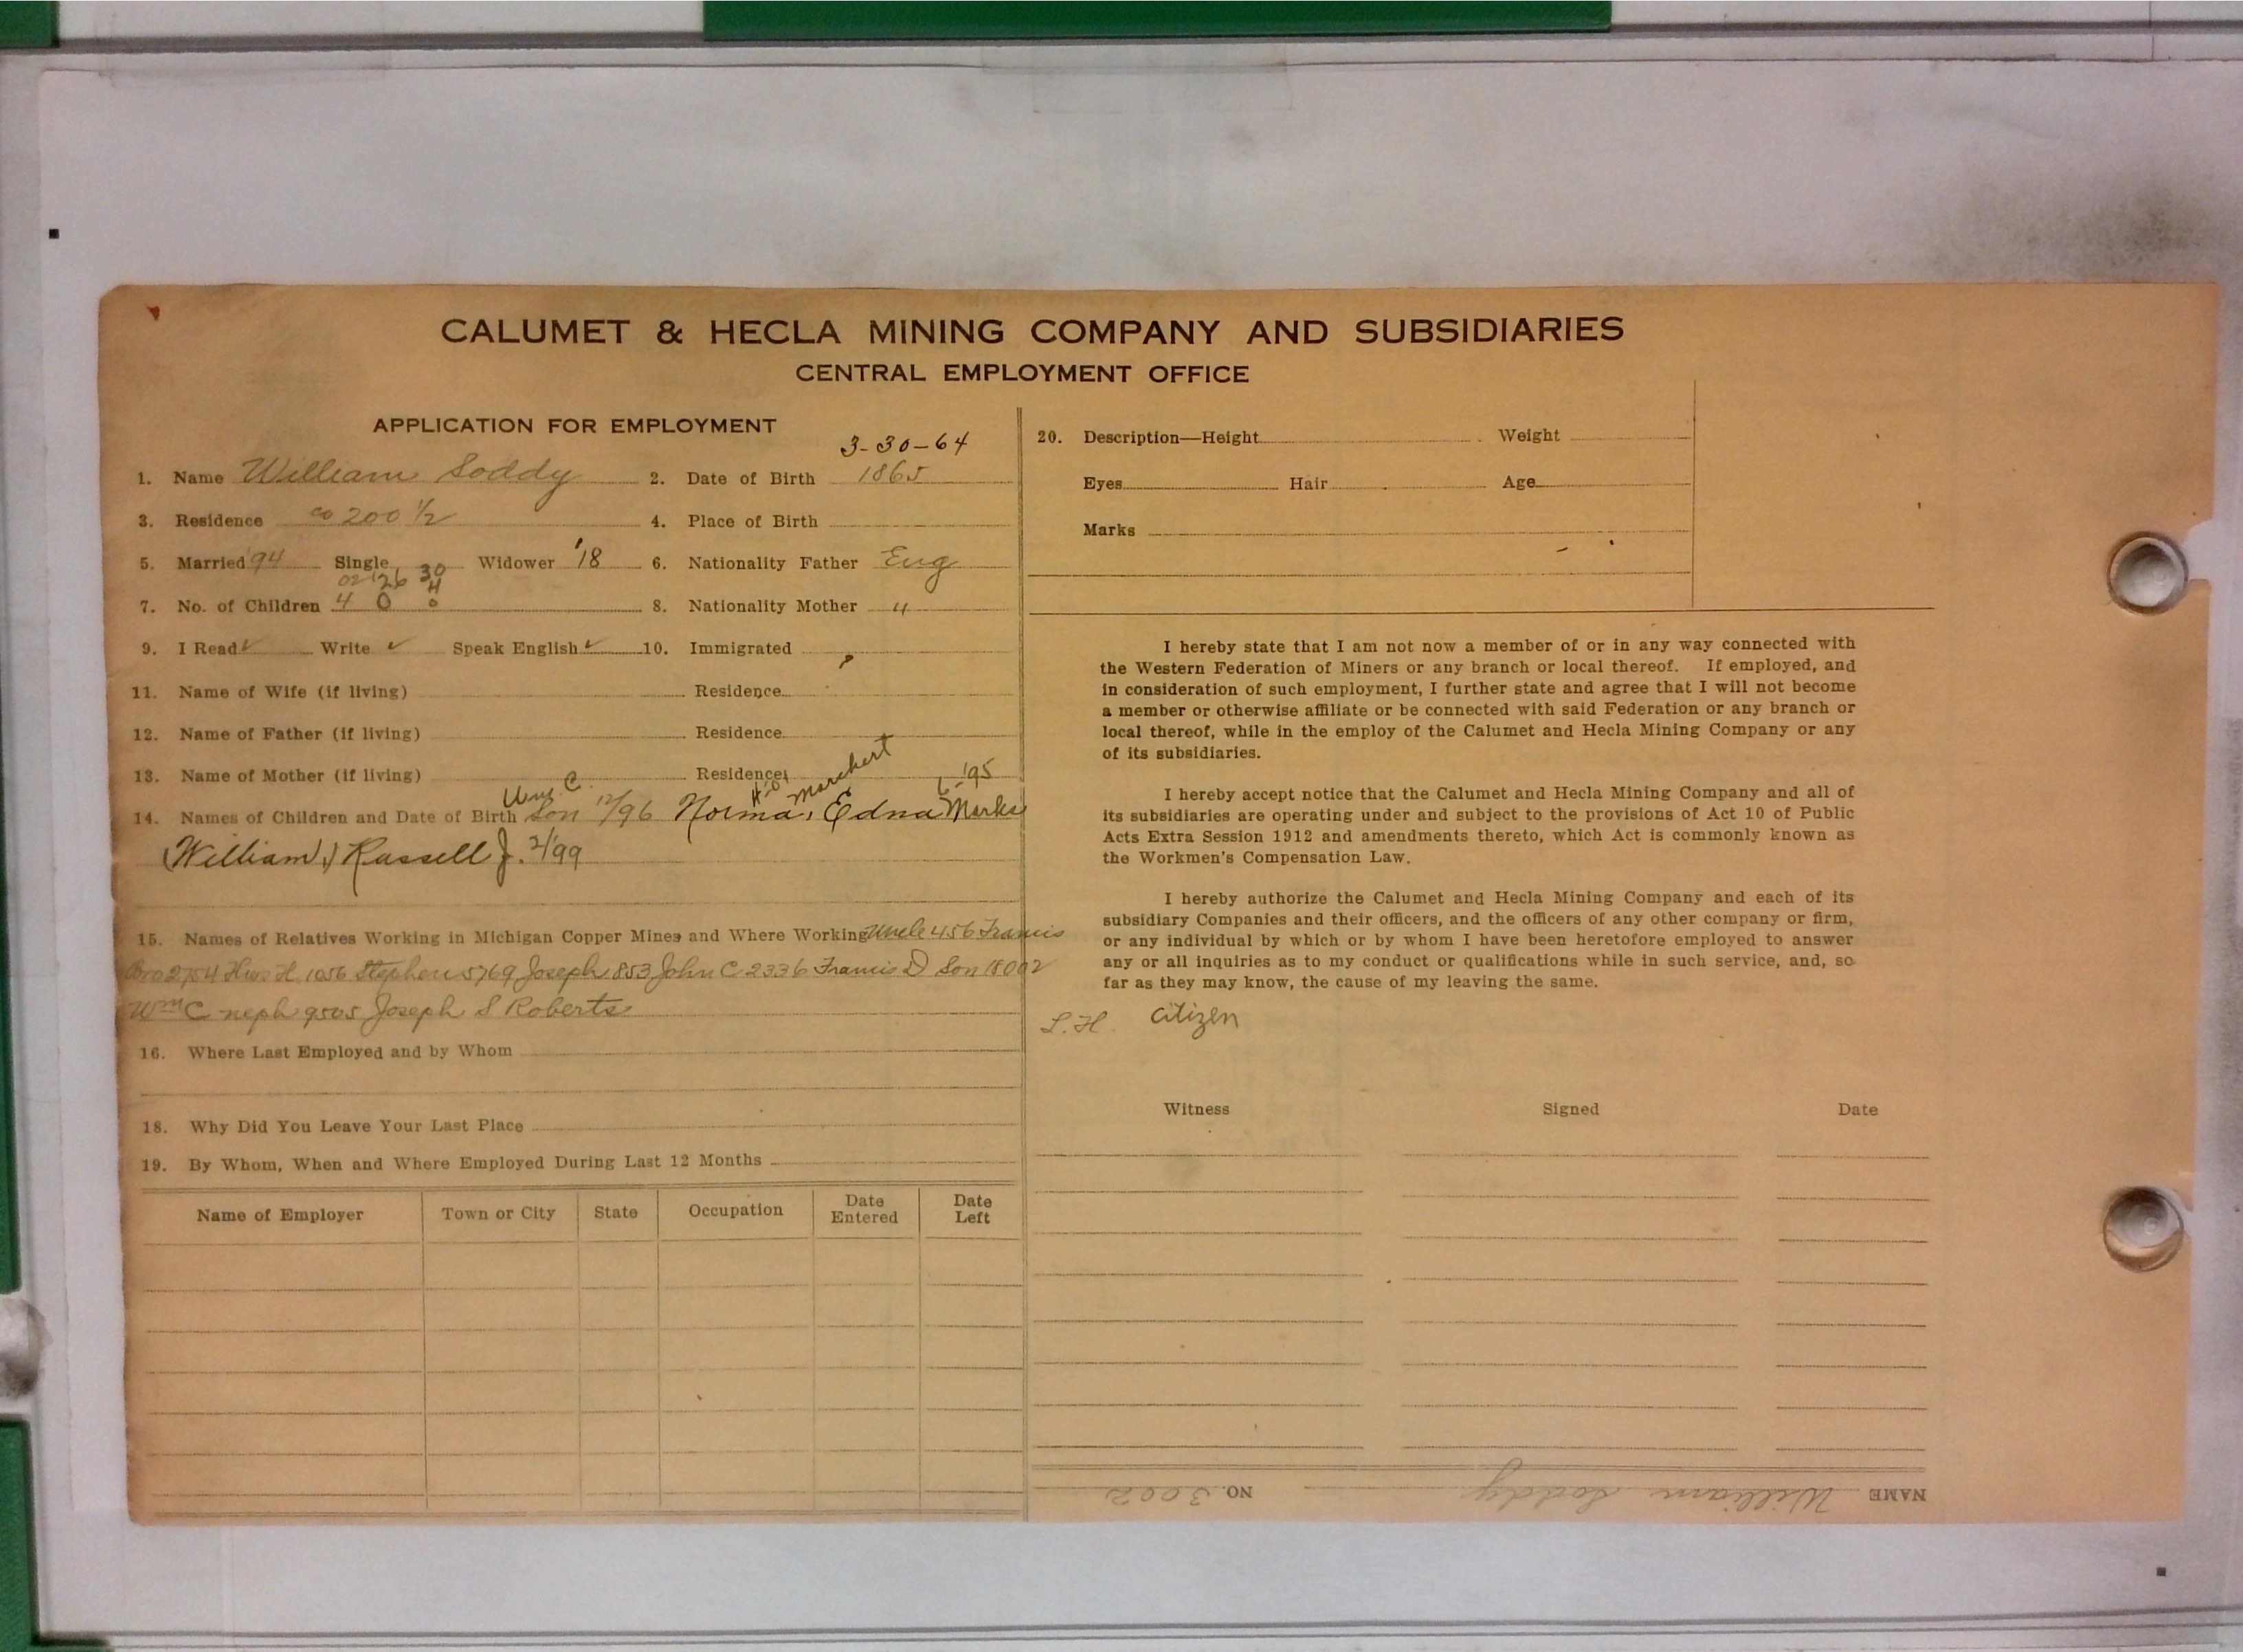 CALUMET & HECLA MINING COMPANY AND SUBSIDIARIES
CENTRAL EMPLOYMENT OFFICE
APPLICATION FOR EMPLOYMENT
3-30-64
1. Name William Soddy 2. Date of Birth 1865
3. Residence co 200 1/2 4. Place of Birth
5. Married '94 Single Widower '18 6. Nationality Father Eng
02 '26 30
4
7. No. of Children 4 0 0 8. Nationality Mother "
9. I Read ✓ Write ✓ Speak English ✓ 10. Immigrated
11. Name of Wife (if living) Residence
12. Name of Father (if living) Residence
13. Name of Mother (if living) Residence
Wm. C. Marchert 6-'95
14. Names of Children and Date of Birth Son 12/96 Norma, Edna Marks
(William,) Russell J. 2/99
15. Names of Relatives Working in Michigan Copper Mines and Where Working Uncle 456 Francis
Bro 2754 H 1056 Stephen 5769 Joseph 853 John C 2336 Francis D Son 18002
Wm C neph 9505 Joseph S Roberts
16. Where Last Employed and by Whom
18. Why Did You Leave Your Last Place
19. By Whom, When and Where Employed During Last 12 Months
Name of Employer Town or City State Occupation Date Entered Date Left
20. Description—Height Weight
Eyes Hair Age
Marks
I hereby state that I am not now a member of or in any way connected with
the Western Federation of Miners or any branch or local thereof. If employed, and
in consideration of such employment, I further state and agree that I will not become
a member or otherwise affiliate or be connected with said Federation or any branch or
local thereof, while in the employ of the Calumet and Hecla Mining Company or any
of its subsidiaries.
I hereby accept notice that the Calumet and Hecla Mining Company and all of
its subsidiaries are operating under and subject to the provisions of Act 10 of Public
Acts Extra Session 1912 and amendments thereto, which Act is commonly known as
the Workmen's Compensation Law.
I hereby authorize the Calumet and Hecla Mining Company and each of its
subsidiary Companies and their officers, and the officers of any other company or firm,
or any individual by which or by whom I have been heretofore employed to answer
any or all inquiries as to my conduct or qualifications while in such service, and, so
far as they may know, the cause of my leaving the same.
L.H. Citizen
Witness Signed Date
NAME William Soddy NO. 3002